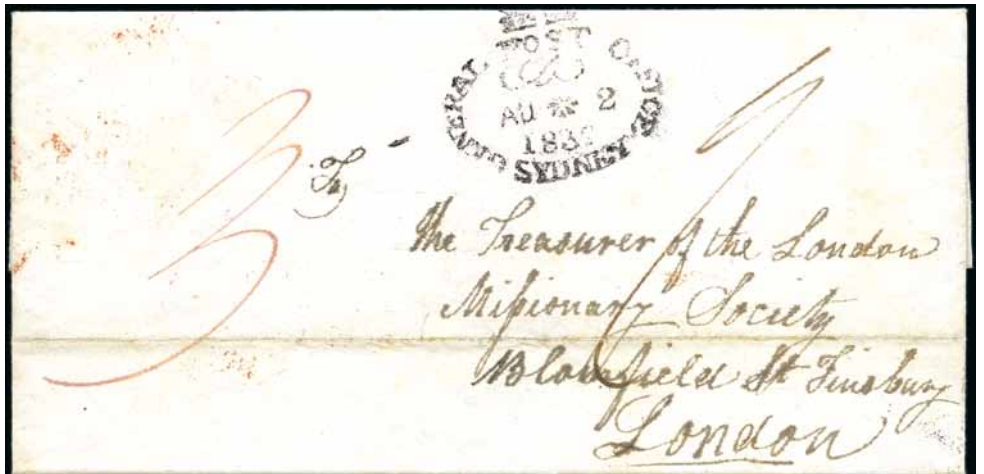 GENERAL POST OFFICE
AU * 2
183
SYDNEY
3
To
the Treasurer of the London
Missionary Society
Blomfield St Finsbury
London